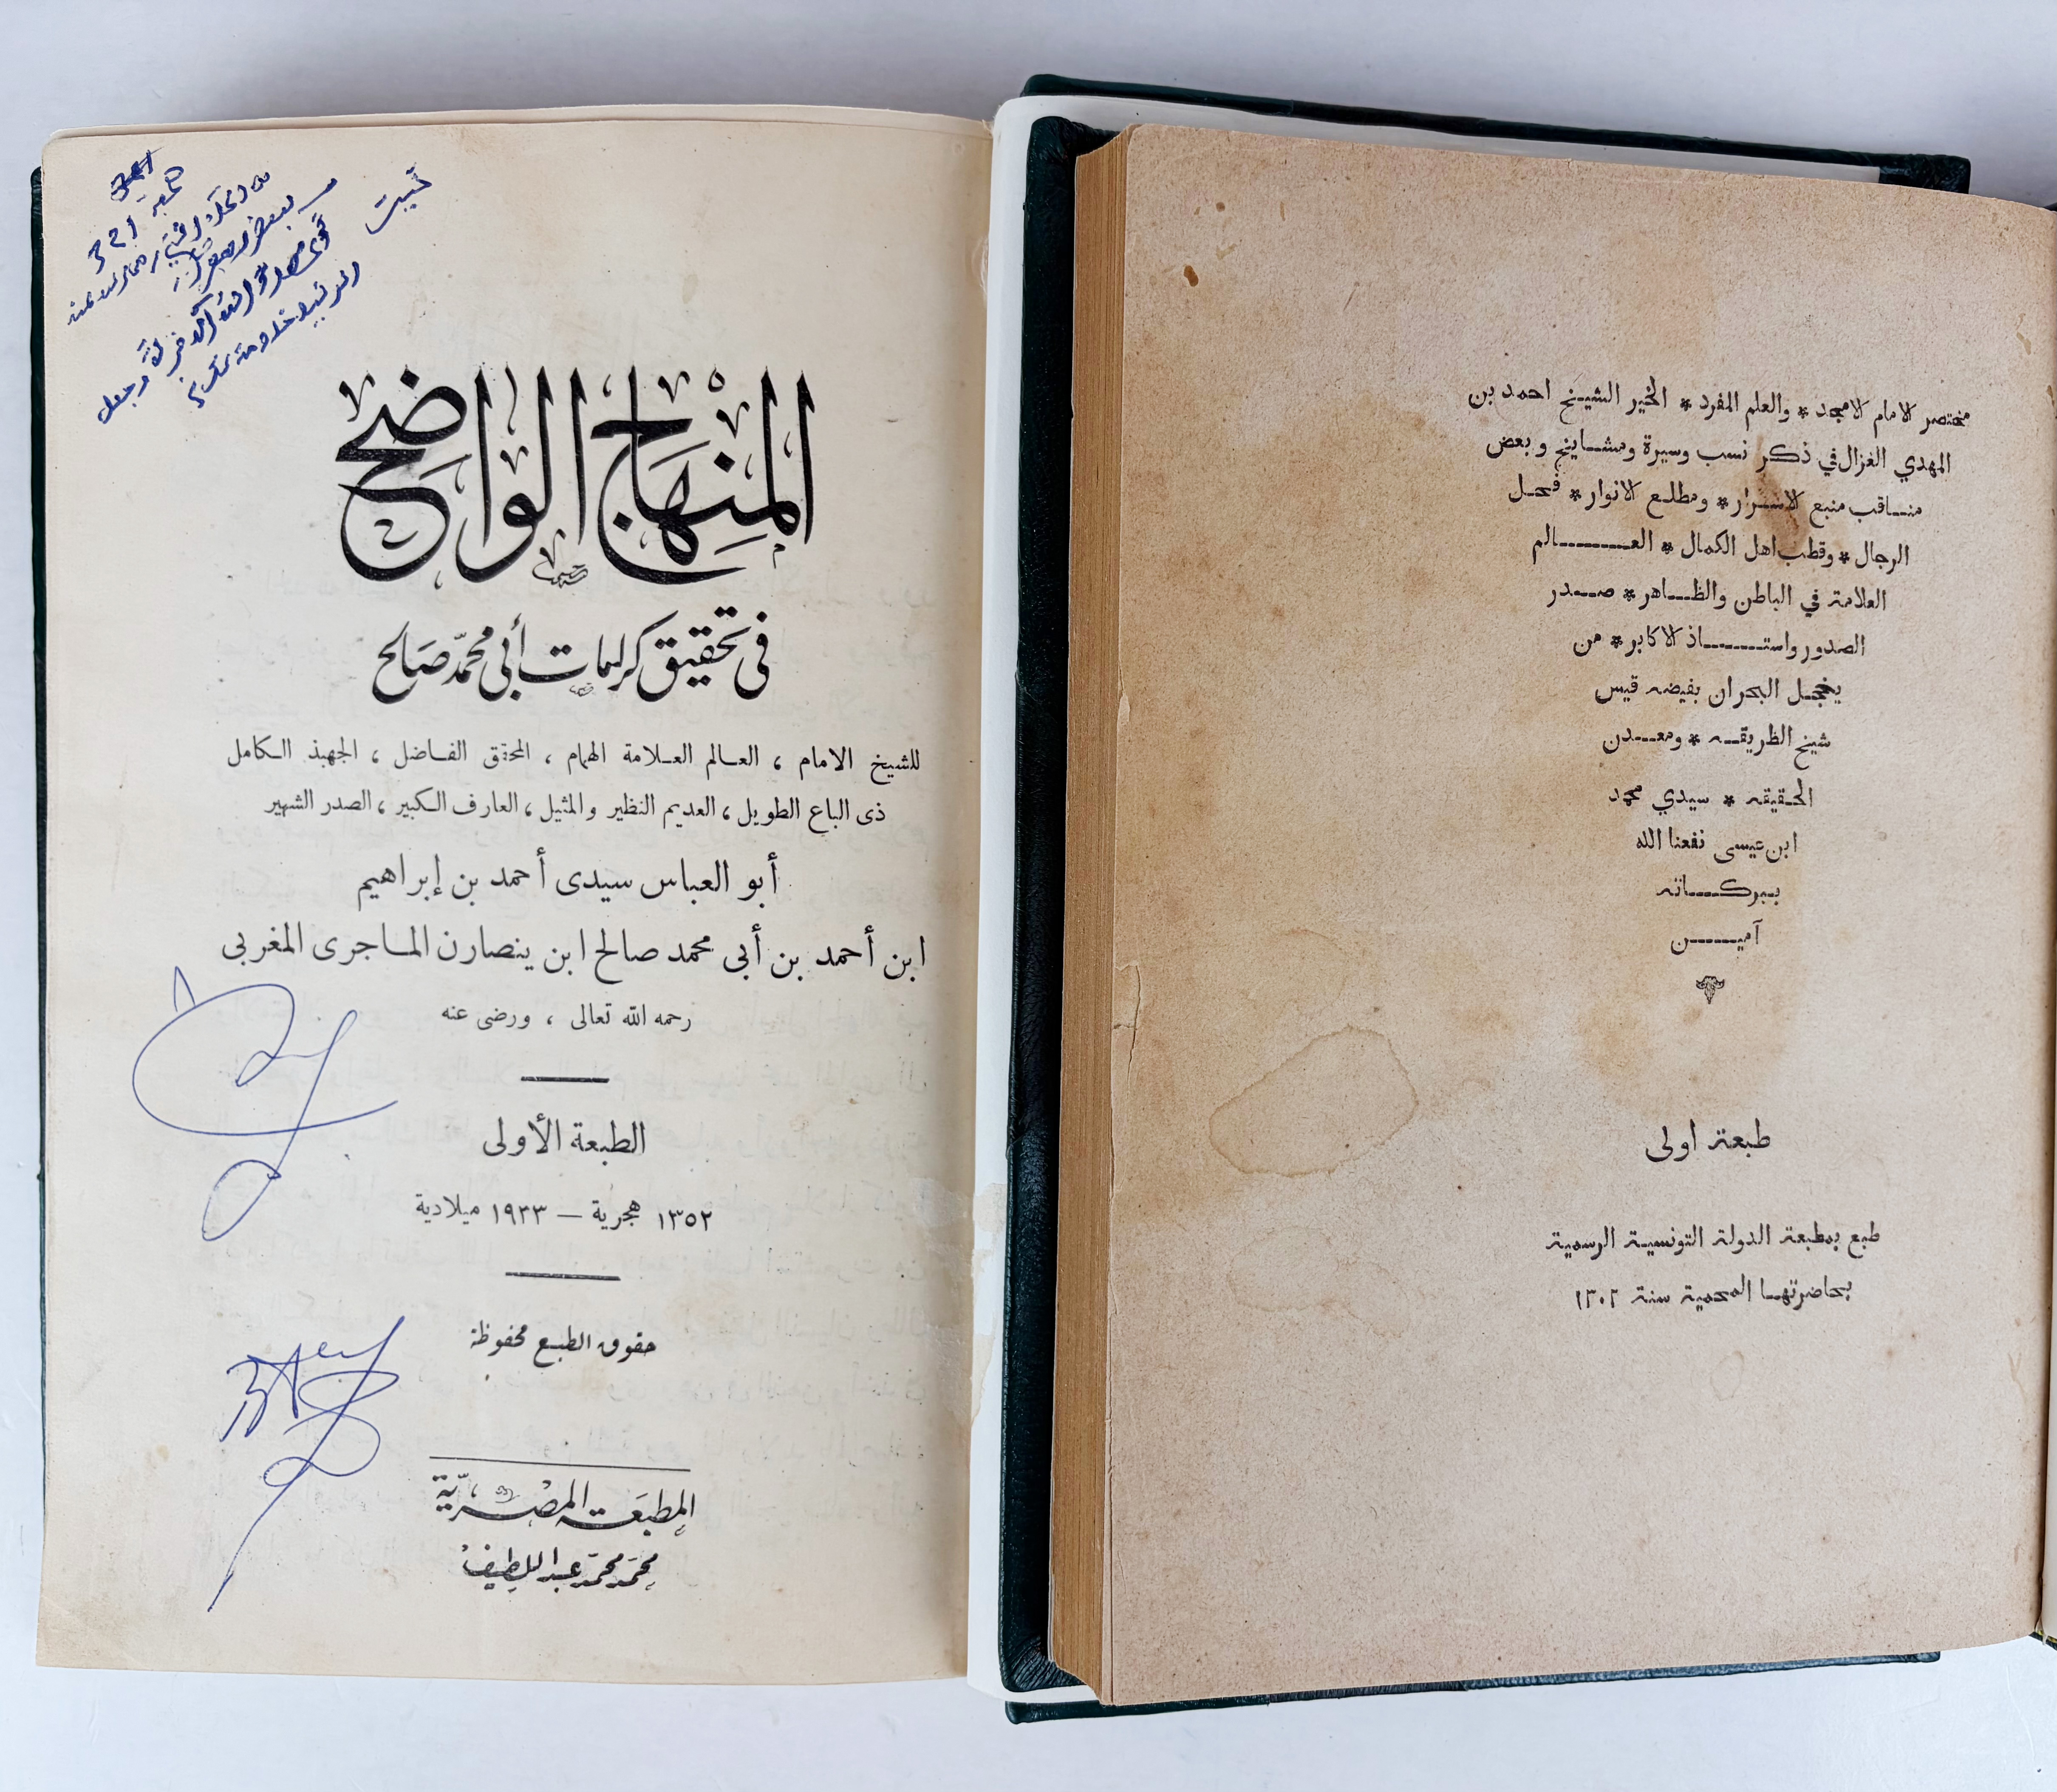 المنهاج الواضح
فى تحقيق كرامات أبى محمد صالح
للشيخ الامام ، العـالم العـلامة الهمام ، المحقق الفـاضل ، الجهبذ الـكامل
ذى الباع الطويل ، العديم النظير والمثيل ، العارف الـكبير ، الصدر الشهير
أبو العباس سيدى أحمد بن إبراهيم
ابن أحمد بن أبى محمد صالح ابن ينصارن المـاجرى المغربى
رحمه الله تعالى ، ورضى عنه
الطبعة الأولى
١٣٥٢ هجرية — ١٩٣٣ ميلادية
حقوق الطبع محفوظة
المطبعة المصرية
محمد محمد عبد اللطيف
مختصر الامام الامجد * والعلم المفرد * الخير الشيخ احمد بن
المهدي الغزال في ذكر نسب وسيرة ومشـايخ وبعض
منـاقب منبع الاسرار * ومطلع الانوار * فحل
الرجال * وقطب اهل الكمال * العـــالم
العلامة في الباطن والظـاهر * صـدر
الصدور واستـــاذ الاكابر * من
يخجل البحران بفيضه قيس
شيخ الطريقه * ومعـدن
الحقيقه * سيدي محمد
ابن عيسى نفعنا الله
ببركـاته
آميـــن
طبعة اولى
طبع بمطبعة الدولة التونسية الرسمية
بحاضرتهـا المحمية سنة ١٣٠٢